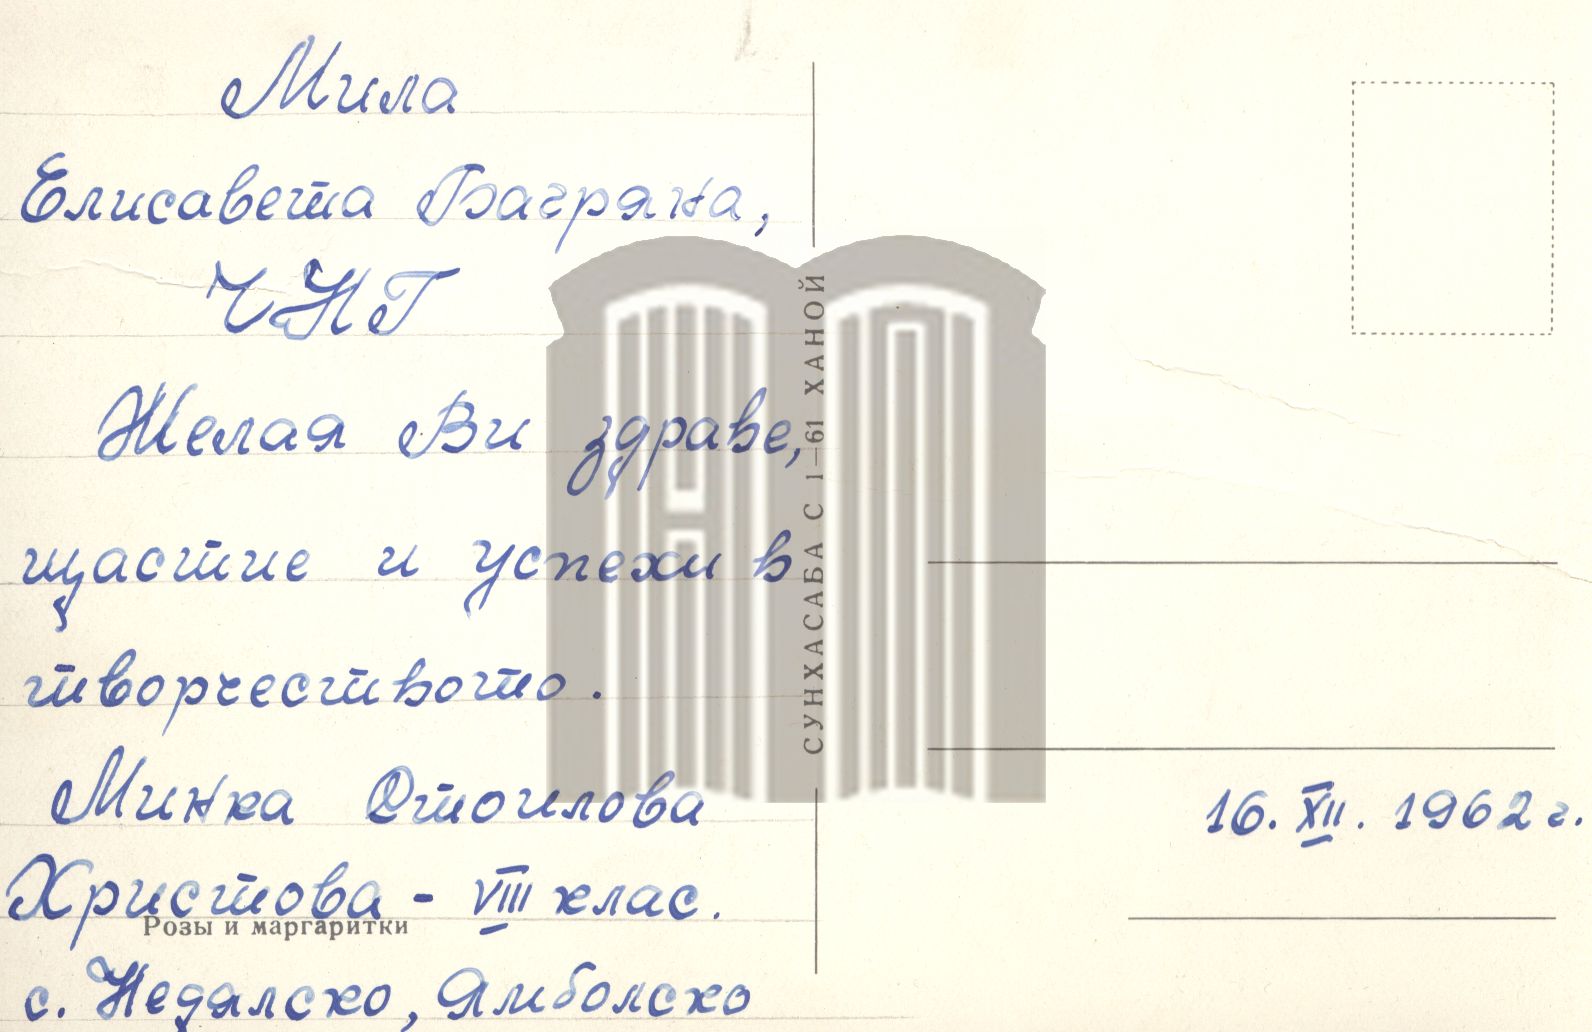 Мила
Елисавета Багряна,
ЧНГ
Желая Ви здраве,
щастие и успехи в
творчеството.
Минка Стоилова
Христова - VIII клас.
с. Недялско, Ямболско
Розы и маргаритки
СУНХАСАБА С 1—61 ХАНОЙ
16. XII. 1962 г.